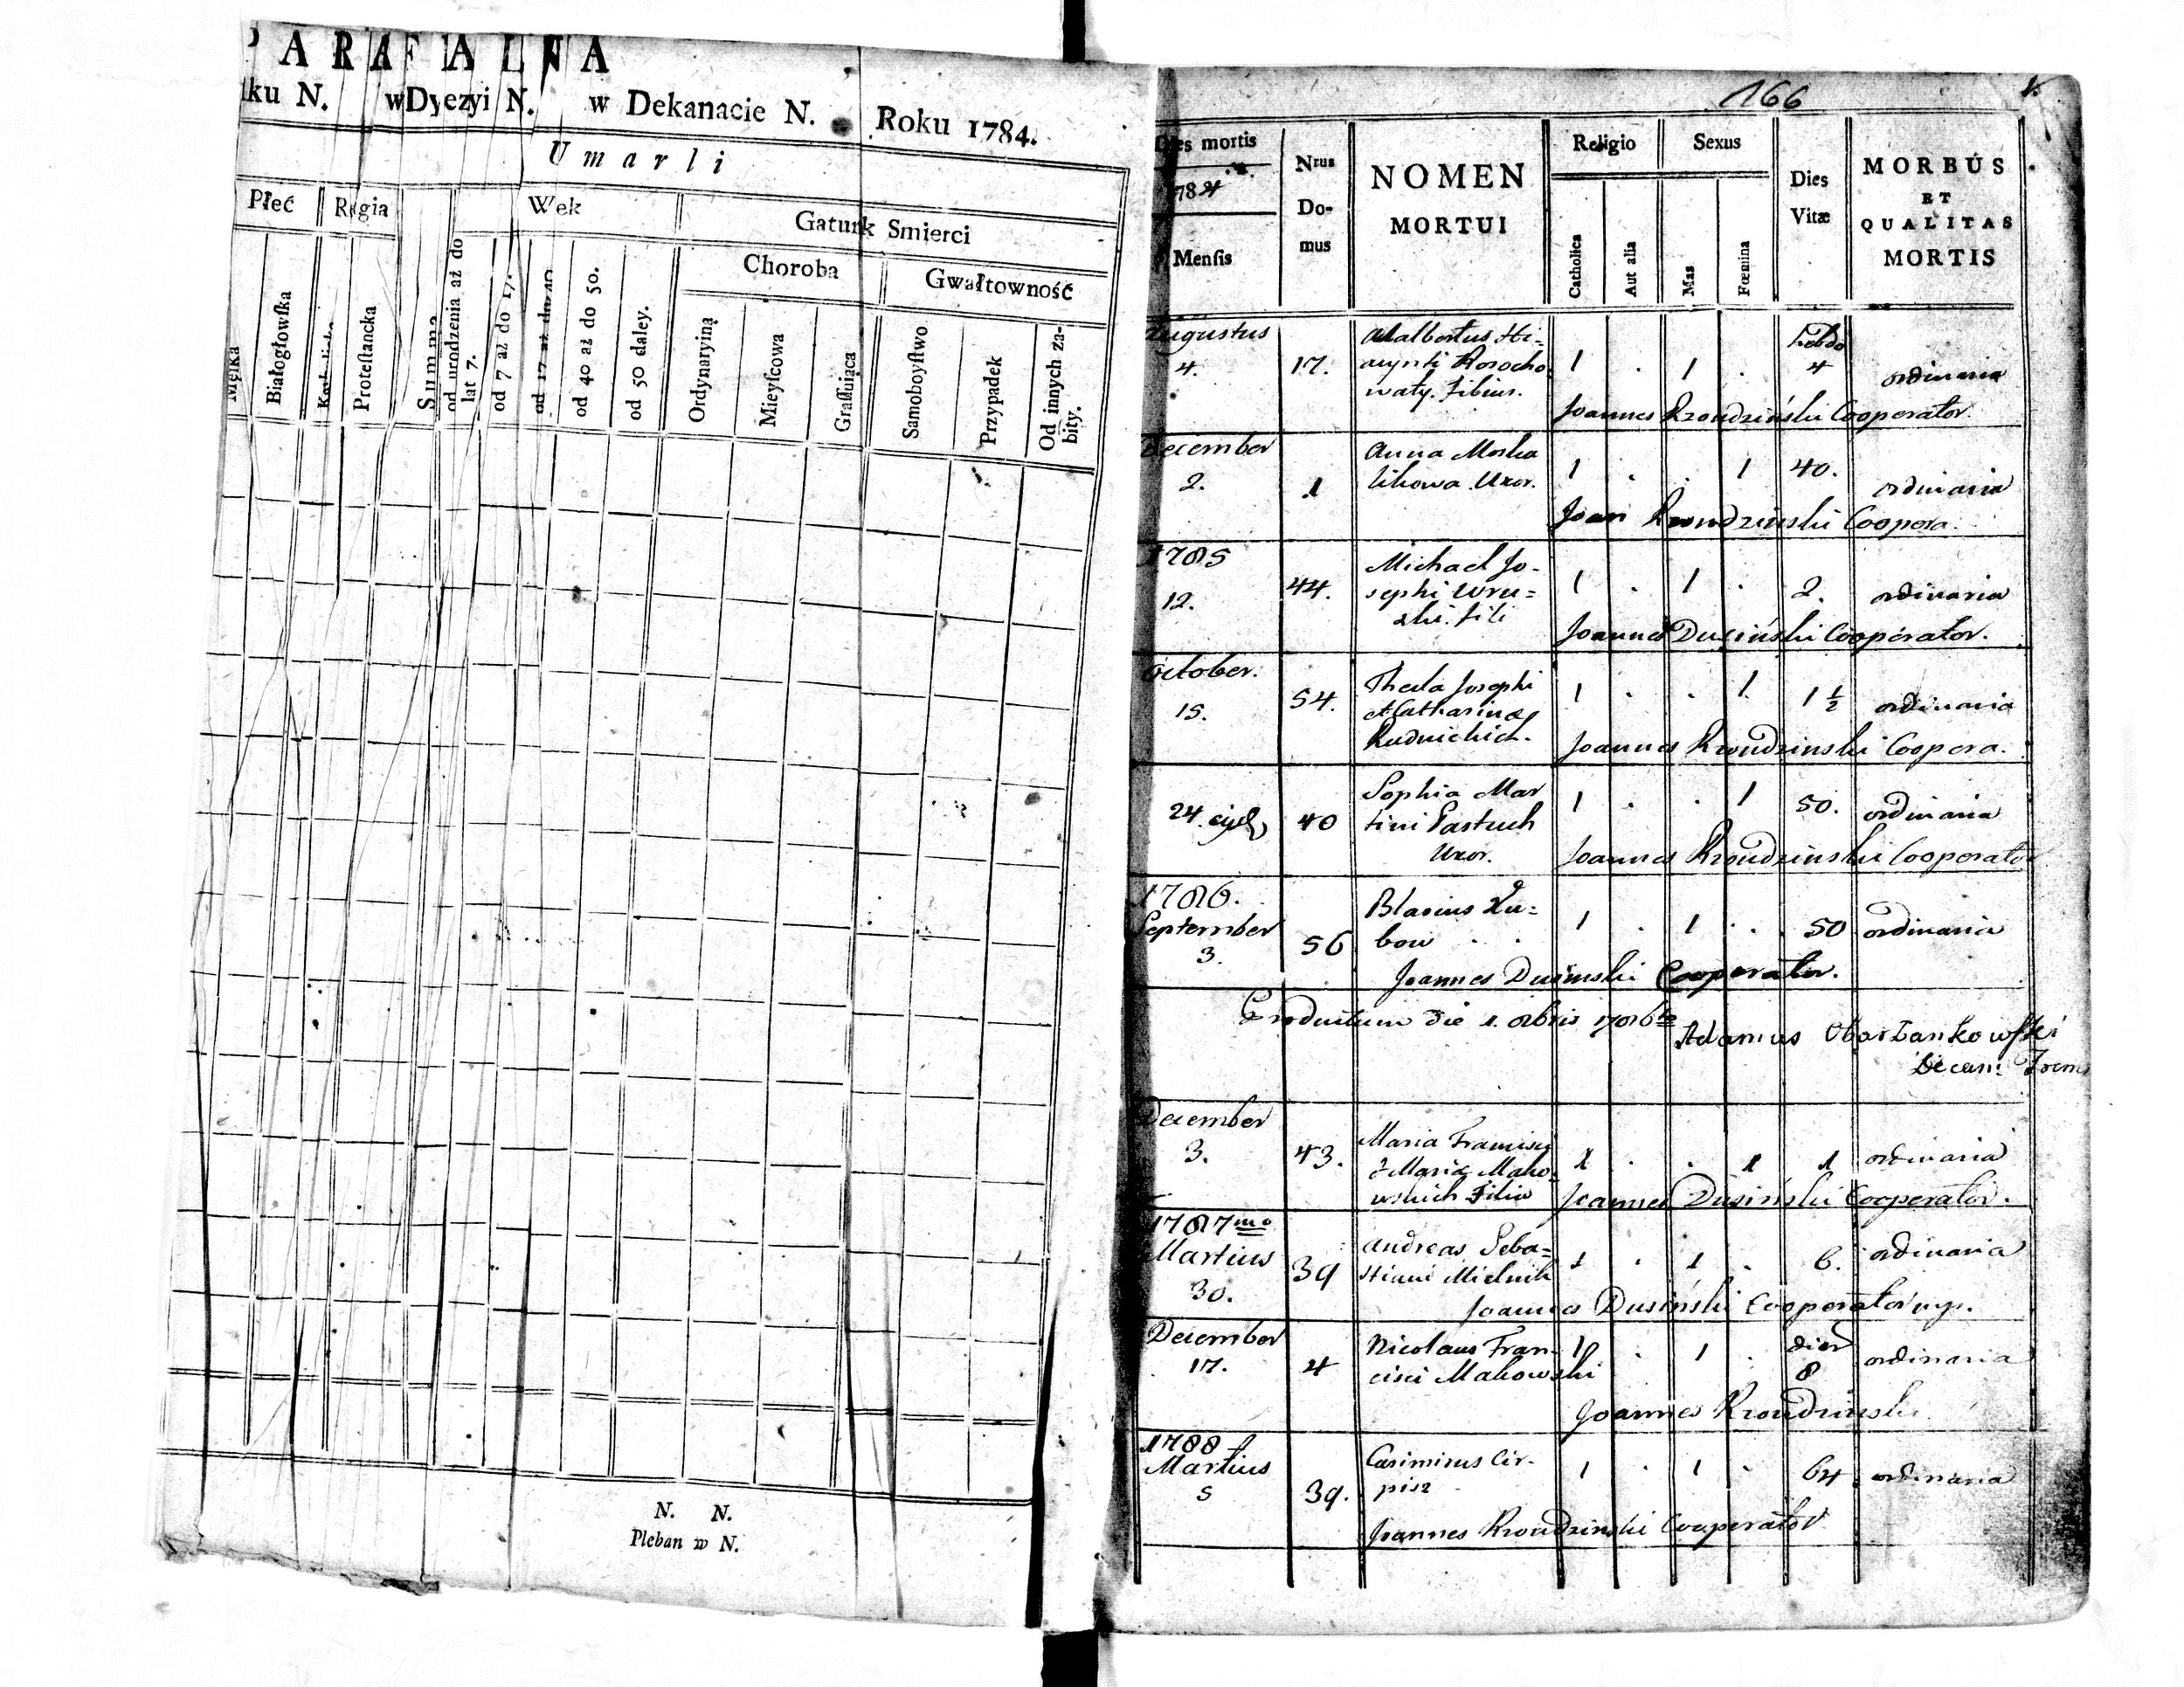 PARAFIALNA
ku N. w Dyezyi N. w Dekanacie N. Roku 1784.
Umarli
Płeć Wiek Gatunek Smierci
Choroba Gwałtowność
Białogłowſka
Proteſtancka
Summa
od urodzenia aż do lat 7.
od 7 aż do 17.
od 17 aż do 40
od 40 aż do 50.
od 50 daley.
Ordynaryiną
Mieyſcowa
Graſſuiąca
Samoboyſtwo
Przypadek
Od innych za-
bity.
N. N.
Pleban w N.
166
Dies mortis
1784
Menſis
Nrus
Do-
mus
NOMEN
MORTUI
Religio
Catholica
Aut alia
Sexus
Mas
Fœmina
Dies
Vitæ
MORBUS
ET
QUALITAS
MORTIS
Augustus
4. 17. Adalbertus Hi=
acynti Korocho
waty. filius. 1 . 1 . hebdo
4 ordinaria
Joannes Cooperator.
December
2. 1 Anna
Uxor. 1 . . 1 40. ordinaria
Joan Coopera.
1785
12. 44. Michael Jo-
sephi
fili 1 . 1 . 2. ordinaria
Joannes Dusiński Cooperator.
October.
15. 54. Thecla Josephi
et Catharinæ
Rudnickich. 1 . . 1 1 1/2 ordinaria
Joannes Coopera.
24. 40 Sophia Mar
tini Pastuch
Uxor. 1 . . 1 50. ordinaria
Joannes Cooperator
1786.
September
3. 56 Blasius
1 . 1 . 50 ordinaria
Joannes Dusinski Cooperator.
Productum die 1. 1786to
Adamus Obarzankowſki
Decan:
December
3. 43. Maria Francisci
& Mariæ Mako
wskich Filia 1 . . 1 1 ordinaria
Joannes Dusiński Cooperator.
1787mo
Martius
30. 39 Andreas Seba=
stiani Mielnik 1 . 1 . 6. ordinaria
Joannes Dusiński Cooperator mp.
December
17. 4 Nicolaus Fran-
cisci Makowski 1 . 1 . dier
8 ordinaria
Joannes
1788
Martius
5 39. Casimirus Cir-
pisz 1 . 1 . 64 ordinaria
Joannes Cooperator